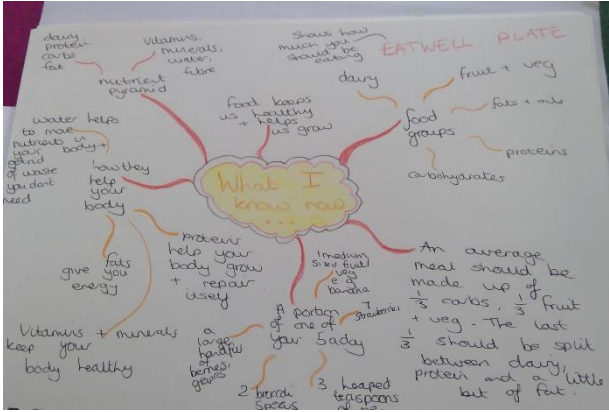 dairy,
protein
carbs
fat
vitamins,
minerals,
water,
fibre
nutrient
pyramid
Shows how
much you
should be
eating
EATWELL PLATE
dairy
fruit + veg
fats + oils
food
groups
proteins
carbohydrates
Food keeps
us healthy
+ helps
us grow
What I
know now
...
water helps
to move
nutrients in
your body +
get rid
of waste
you dont
need
how they
help
your
body
fats
give you
energy
proteins
help your
body grow
+ repair
itself
Vitamins + minerals
keep your
body healthy
A portion
of one of
your 5aday
1 medium
sized fruit/
veg
e.g
banana
7
strawberries
a
large
handful
of
berries/
grapes
2 broccoli
spears
3 heaped
teaspoons
An average
meal should be
made up of
1/3 carbs, 1/3 fruit
+ veg. The last
1/3 should be split
between dairy,
protein and a little
bit of fat.